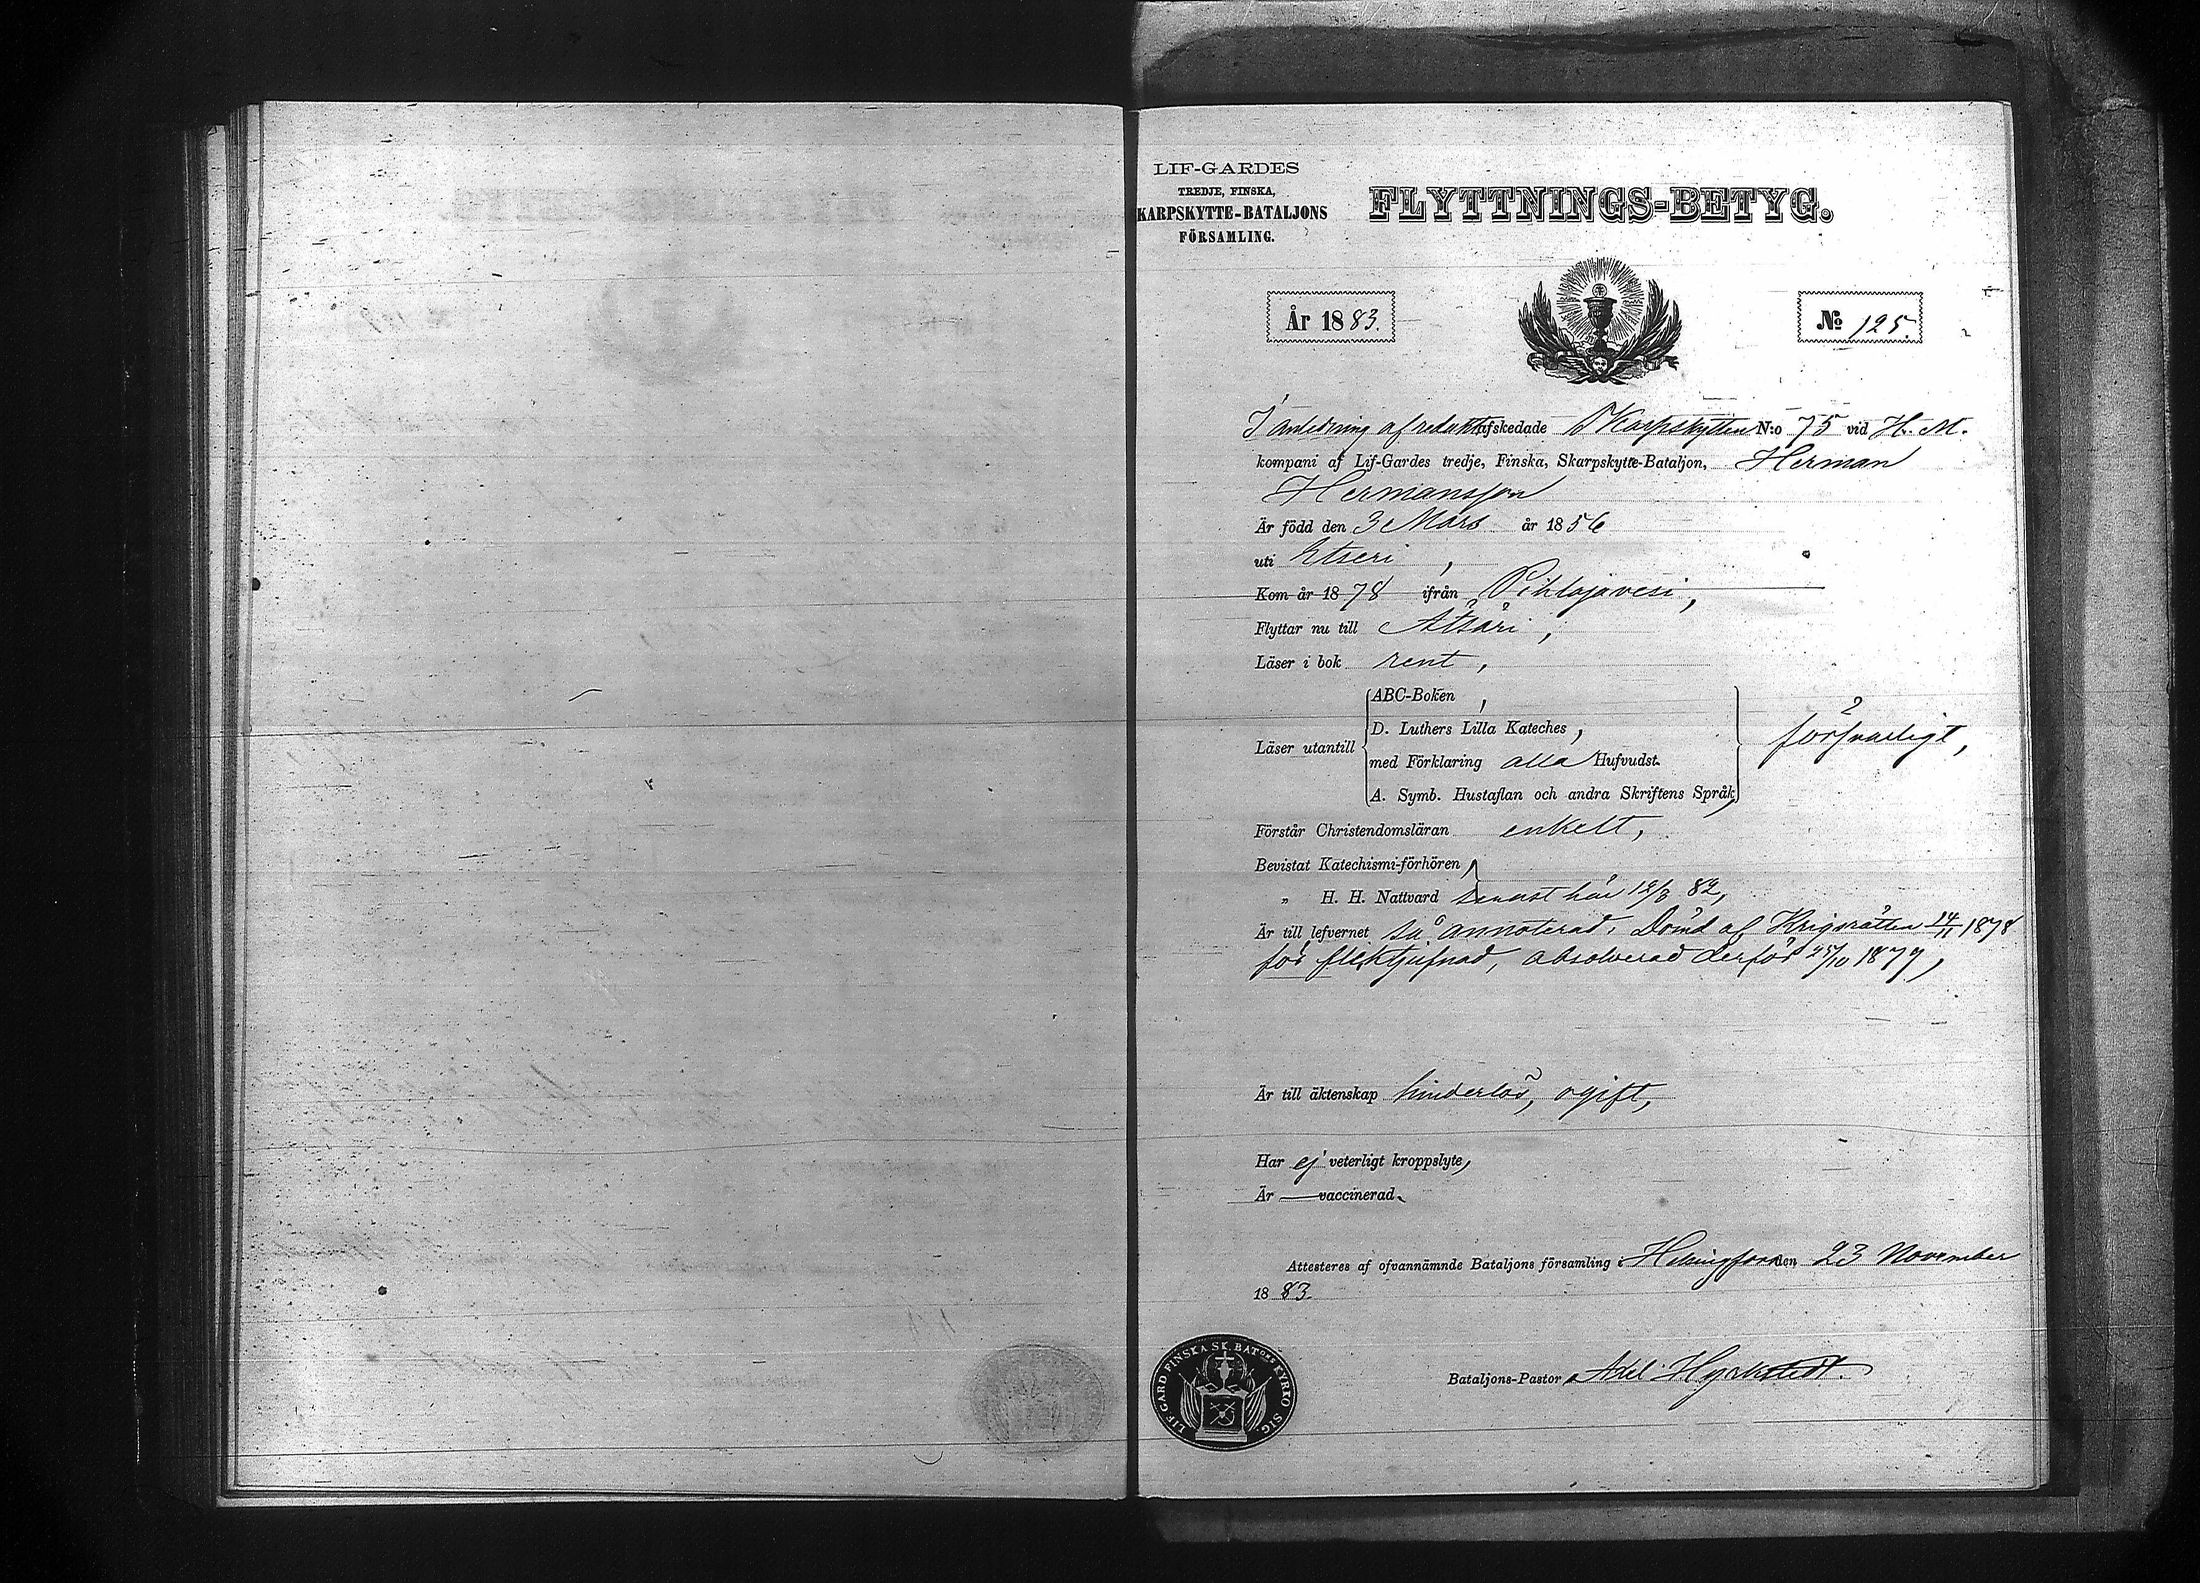 LIF-GARDES
TREDJE, FINSKA,
KARPSKYTTE-BATALJONS
FÖRSAMLING.
FLYTTNINGS-BETYG.
År 1883.
No 125.
I anledning af afskedade Skarpskytten N:o 75 vid H. M.
kompani af Lif-Gardes tredje, Finska, Skarpskytte-Bataljon, Herman
Hermansson
Är född den 3 Mars år 1856
uti Etseri,
Kom år 1878 ifrån Pihlajavesi,
Flyttar nu till Ätsäri,
Läser i bok rent,
ABC-Boken,
Läser utantill D. Luthers Lilla Kateches, försvarligt,
med Förklaring alla Hufvudst.
A. Symb. Hustaflan och andra Skriftens Språk,
Förstår Christendomsläran enkelt,
Bevistat Katechismi-förhören,
„ H. H. Nattvard senast här 12/3 82,
Är till lefvernet så annoterad: Dömd af Krigsrätten 14/11 1878
för tjufnad, absolverad derför 25/10 1879,
Är till äktenskap hinderlös, ogift,
Har ej veterligt kroppslyte,
Är — vaccinerad.
Attesteres af ofvannämnde Bataljons församling i Helsingfors den 23 November
1883.
Bataljons-Pastor
LIF GARD FINSKA SK. BATONS KYRKO SIG.